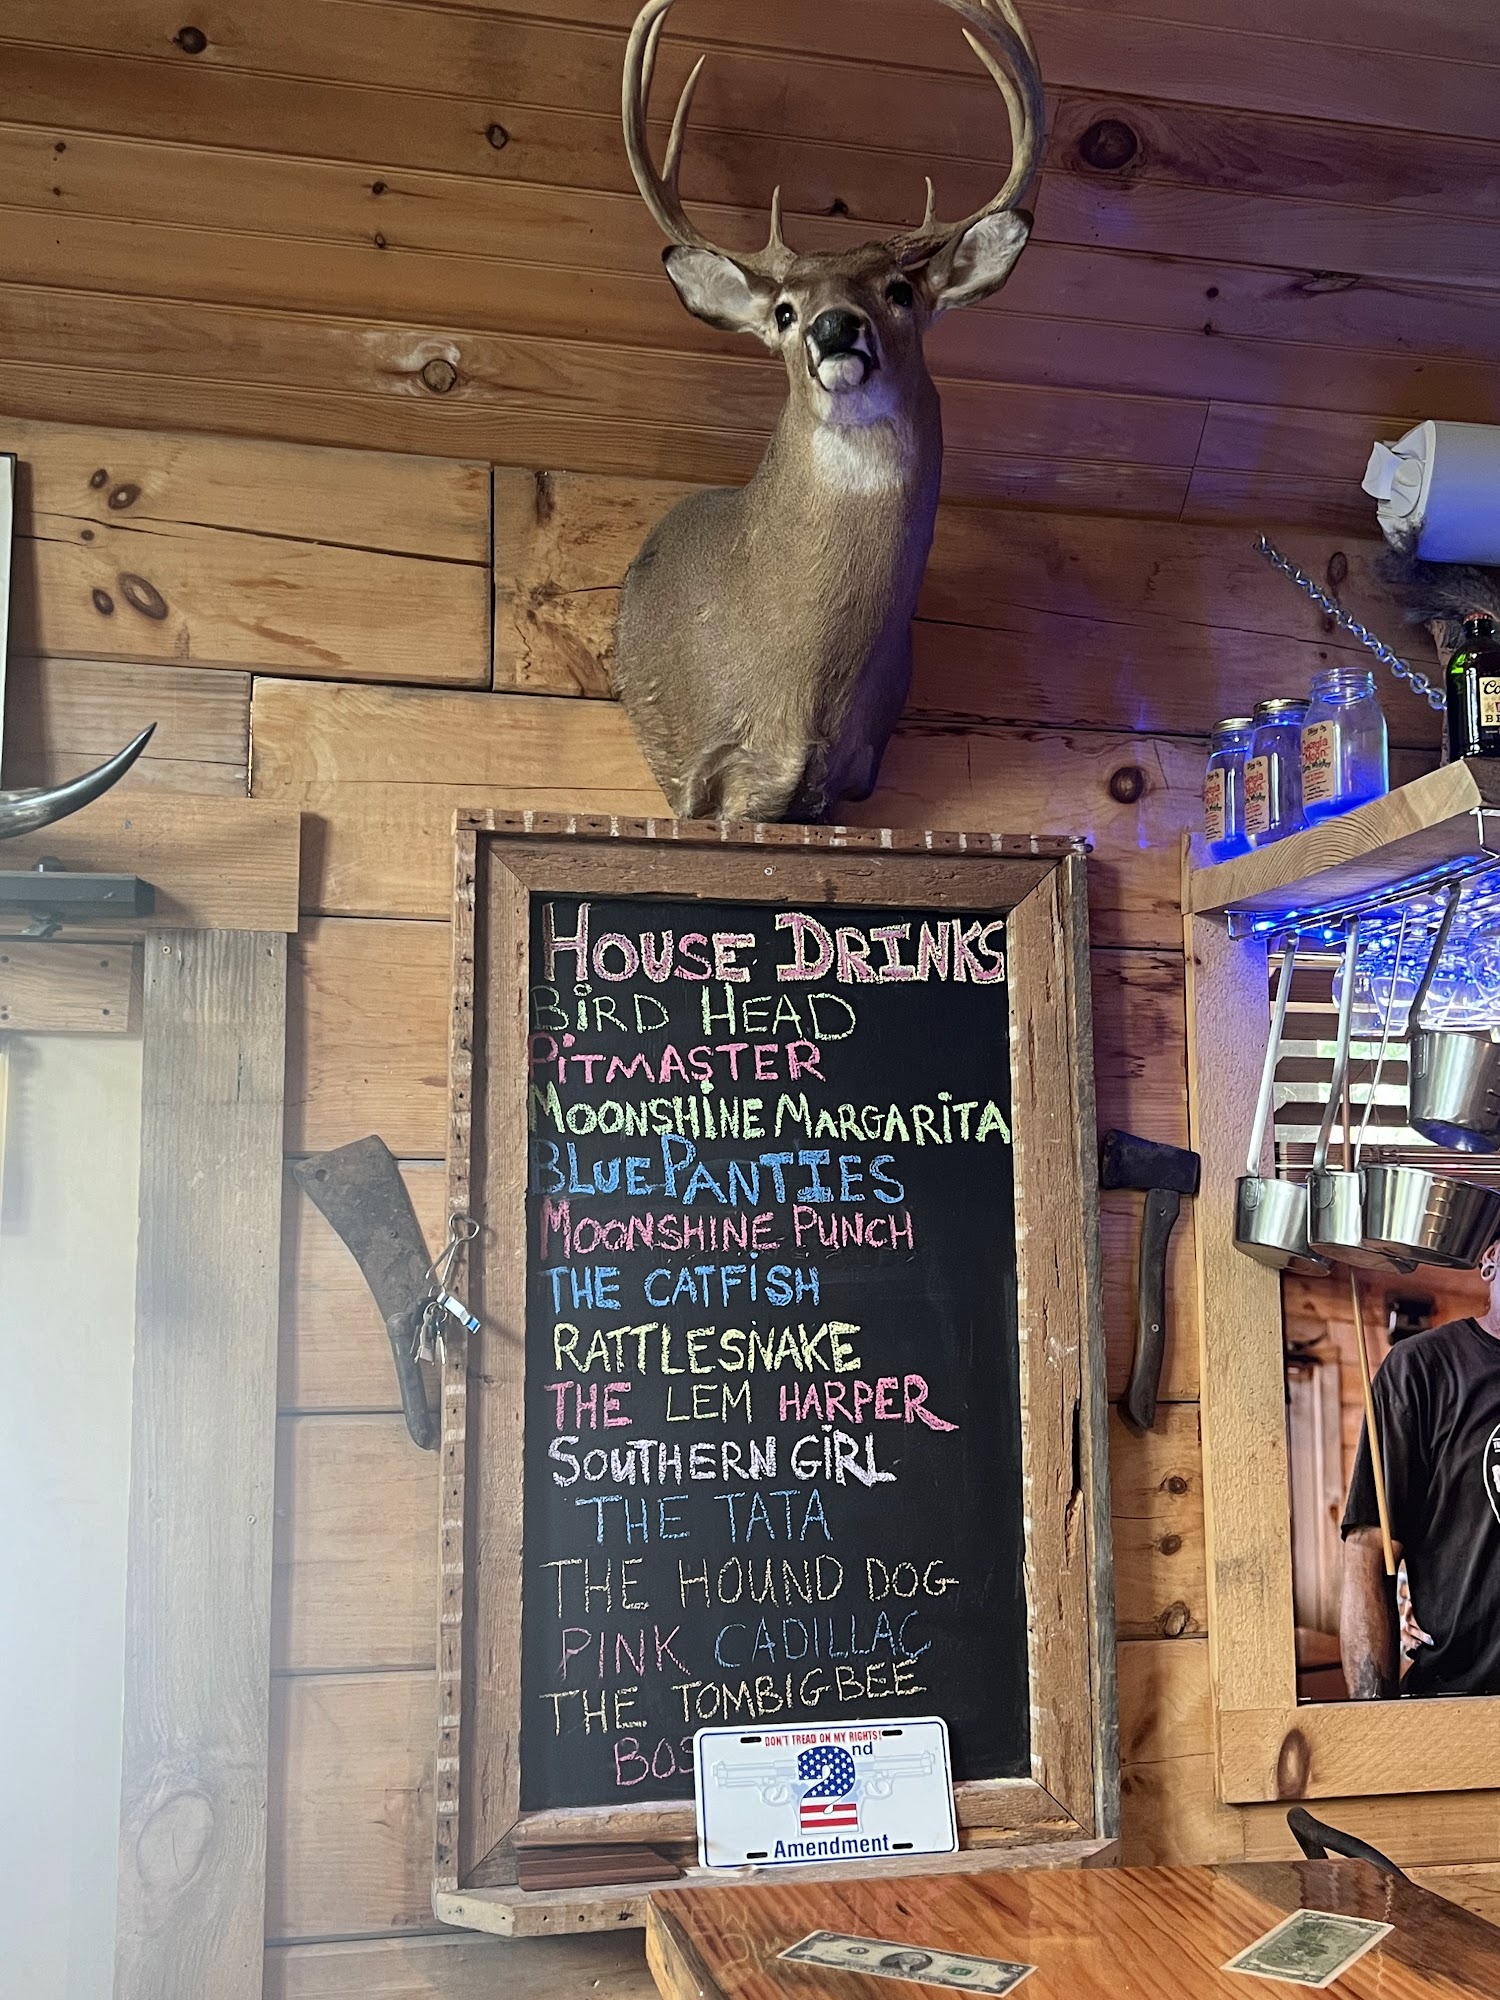 HOUSE DRINKS
BiRD HEAD
PiTMASTER
MOONSHiNE MARGARiTA
BLUE PANTIES
MOONSHINE PUNCH
THE CATFiSH
RATTLESNAKE
THE LEM HARPER
SOUTHERN GiRL
THE TATA
THE HOUND DOG
PINK CADILLAC
THE TOMBIGBEE
DON'T TREAD ON MY RIGHTS!
2nd
Amendment
Georgia
Moon
Corn Whiskey